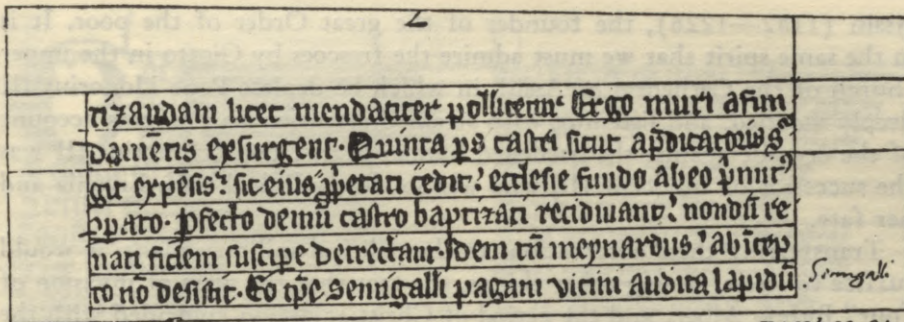 tizandam licet mendaciter pollicent᷑ Ergo muri afun
damētis exsurgunt. Quinta ꝑs castri sicut ap̄dicatoris s᷑
git expēsis? sic eius ꝓp̄etati cedit? ecclesie fundo abeo p̄mit᷒
cōpato. Pfecto demū castro baptizati recidiuant? nondū re
nati fidem suscipe detrectant. Idem tn̄ meynardus? ab incep
to nō desistit. Eo qͥpe semigalli pagani vicini audita lapidū
Semigalli